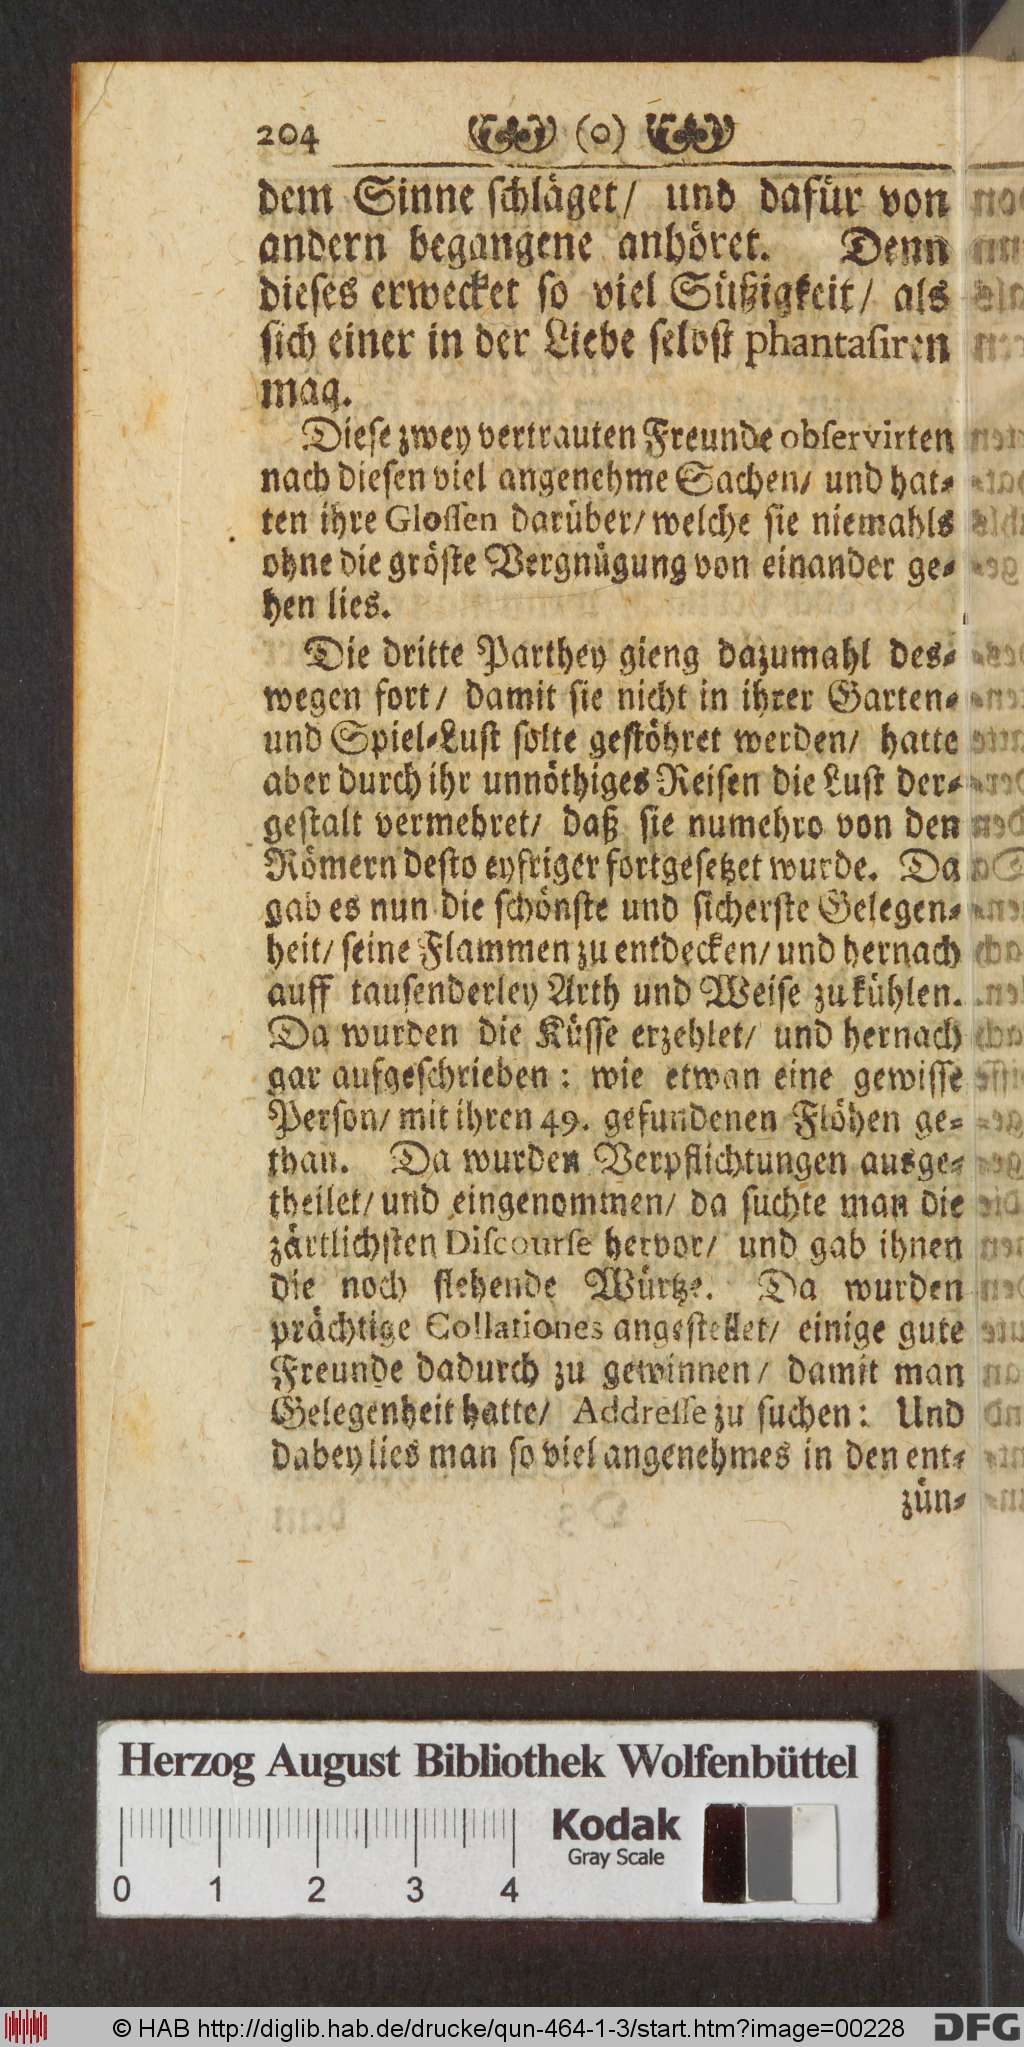 204 (o)
dem Sinne ſchläget/ und dafür von
andern begangene anhöret. Denn
dieſes erwecket ſo viel Süßigkeit/ als
ſich einer in der Liebe ſelbſt phantaſiren
mag.
Dieſe zwey vertrauten Freunde obſervirten
nach dieſen viel angenehme Sachen/ und hat-
ten ihre Gloſſen darüber/ welche ſie niemahls
ohne die gröſte Vergnügung von einander ge-
hen lies.
Die dritte Parthey gieng dazumahl des-
wegen fort/ damit ſie nicht in ihrer Garten-
und Spiel-Luſt ſolte geſtöhret werden/ hatte
aber durch ihr unnöthiges Reiſen die Luſt der-
geſtalt vermehret/ daß ſie numehro von den
Römern deſto eyfriger fortgeſetzet wurde. Da
gab es nun die ſchönſte und ſicherſte Gelegen-
heit/ ſeine Flammen zu entdecken/ und hernach
auff tauſenderley Arth und Weiſe zu kühlen.
Da wurden die Küſſe erzehlet/ und hernach
gar aufgeſchrieben: wie etwan eine gewiſſe
Perſon/ mit ihren 49. gefundenen Flöhen ge-
than. Da wurden Verpflichtungen ausge-
theilet/ und eingenommen/ da ſuchte man die
zärtlichſten Diſcourſe hervor/ und gab ihnen
die noch flehende Würtze. Da wurden
prächtige Collationes angeſtellet/ einige gute
Freunde dadurch zu gewinnen/ damit man
Gelegenheit hatte/ Addreſſe zu ſuchen: Und
dabey lies man ſo viel angenehmes in den ent-
zün-
Herzog August Bibliothek Wolfenbüttel
0 1 2 3 4
Kodak
Gray Scale
© HAB http://diglib.hab.de/drucke/qun-464-1-3/start.htm?image=00228
DFG